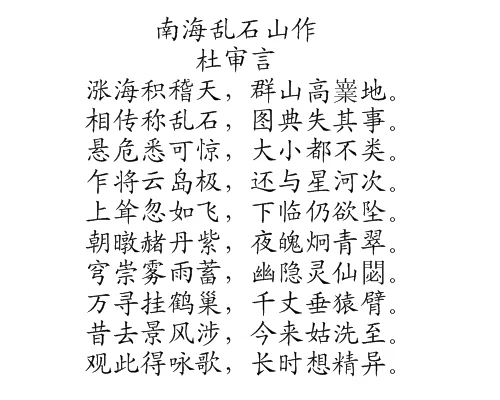 南海乱石山作
杜审言
涨海积稽天，群山高嶪地。
相传称乱石，图典失其事。
悬危悉可惊，大小都不类。
乍将云岛极，还与星河次。
上耸忽如飞，下临仍欲坠。
朝暾赩丹紫，夜魄炯青翠。
穹崇雾雨蓄，幽隐灵仙閟。
万寻挂鹤巢，千丈垂猿臂。
昔去景风涉，今来姑洗至。
观此得咏歌，长时想精异。